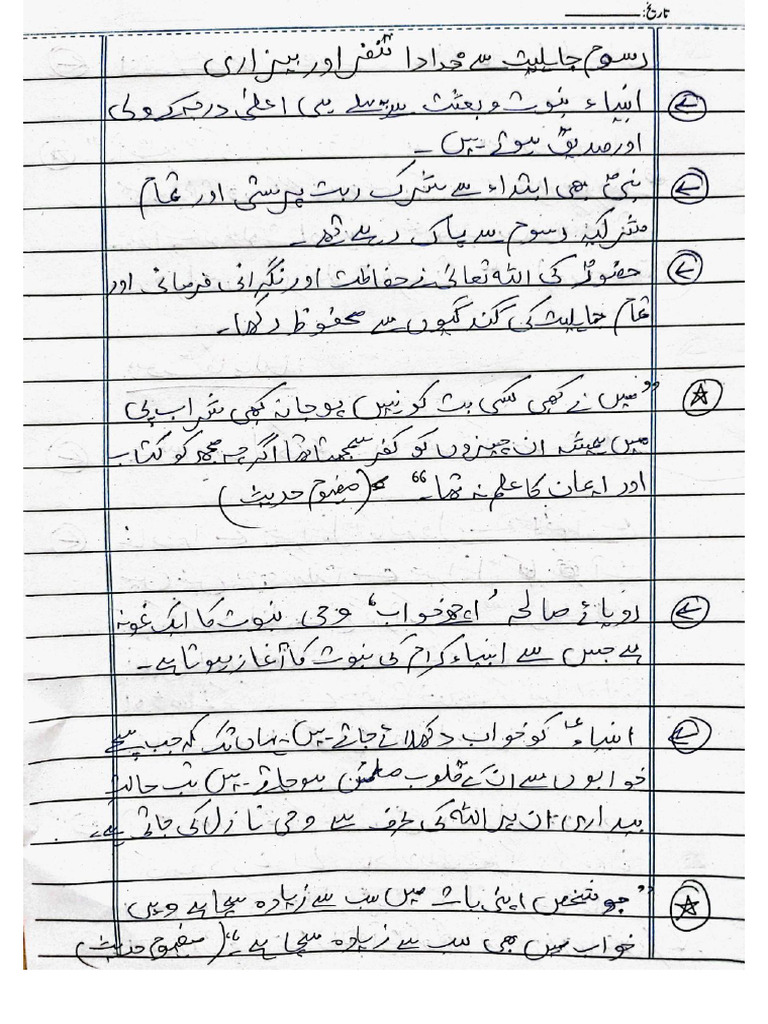 تاریخ:
رسوم جاہلیت سے خداداد تنفر اور بیزاری
← انبیاء نبوت و بعثت سے پہلے ہی اعلیٰ درجہ کے ولی
اور صدیق ہوتے ہیں۔
← نبیؐ بھی ابتداء سے شرک و بت پرستی اور تمام
مشرکیہ رسوم سے پاک رہے تھے۔
← حضورؐ کی اللہ تعالیٰ نے حفاظت اور نگرانی فرمائی اور
تمام جاہلیت کی گندگیوں سے محفوظ رکھا۔
☆ "میں نے کبھی کسی بت کو نہیں پوجا نہ کبھی شراب پی
میں ہمیشہ ان چیزوں کو کفر سمجھتا تھا اگرچہ مجھ کو کتاب
اور ایمان کا علم نہ تھا۔" (مفہوم حدیث)
← رویائے صالحہ 'اچھے خواب' وحی نبوت کا ایک نمونہ
ہے جس سے انبیاء کرام کی نبوت کا آغاز ہوتا ہے۔
← انبیاءؑ کو خواب دکھلائے جاتے ہیں۔ یہاں تک کہ جب سچے
خوابوں سے ان کے قلوب مطمئن ہو جاتے ہیں تب حالت
بیداری ان پر اللہ کی طرف سے وحی نازل کی جاتی ہے۔
☆ "جو شخص اپنی بات میں سب سے زیادہ سچا ہے وہیں
خواب میں بھی سب سے زیادہ سچا ہے۔" (مفہوم حدیث)